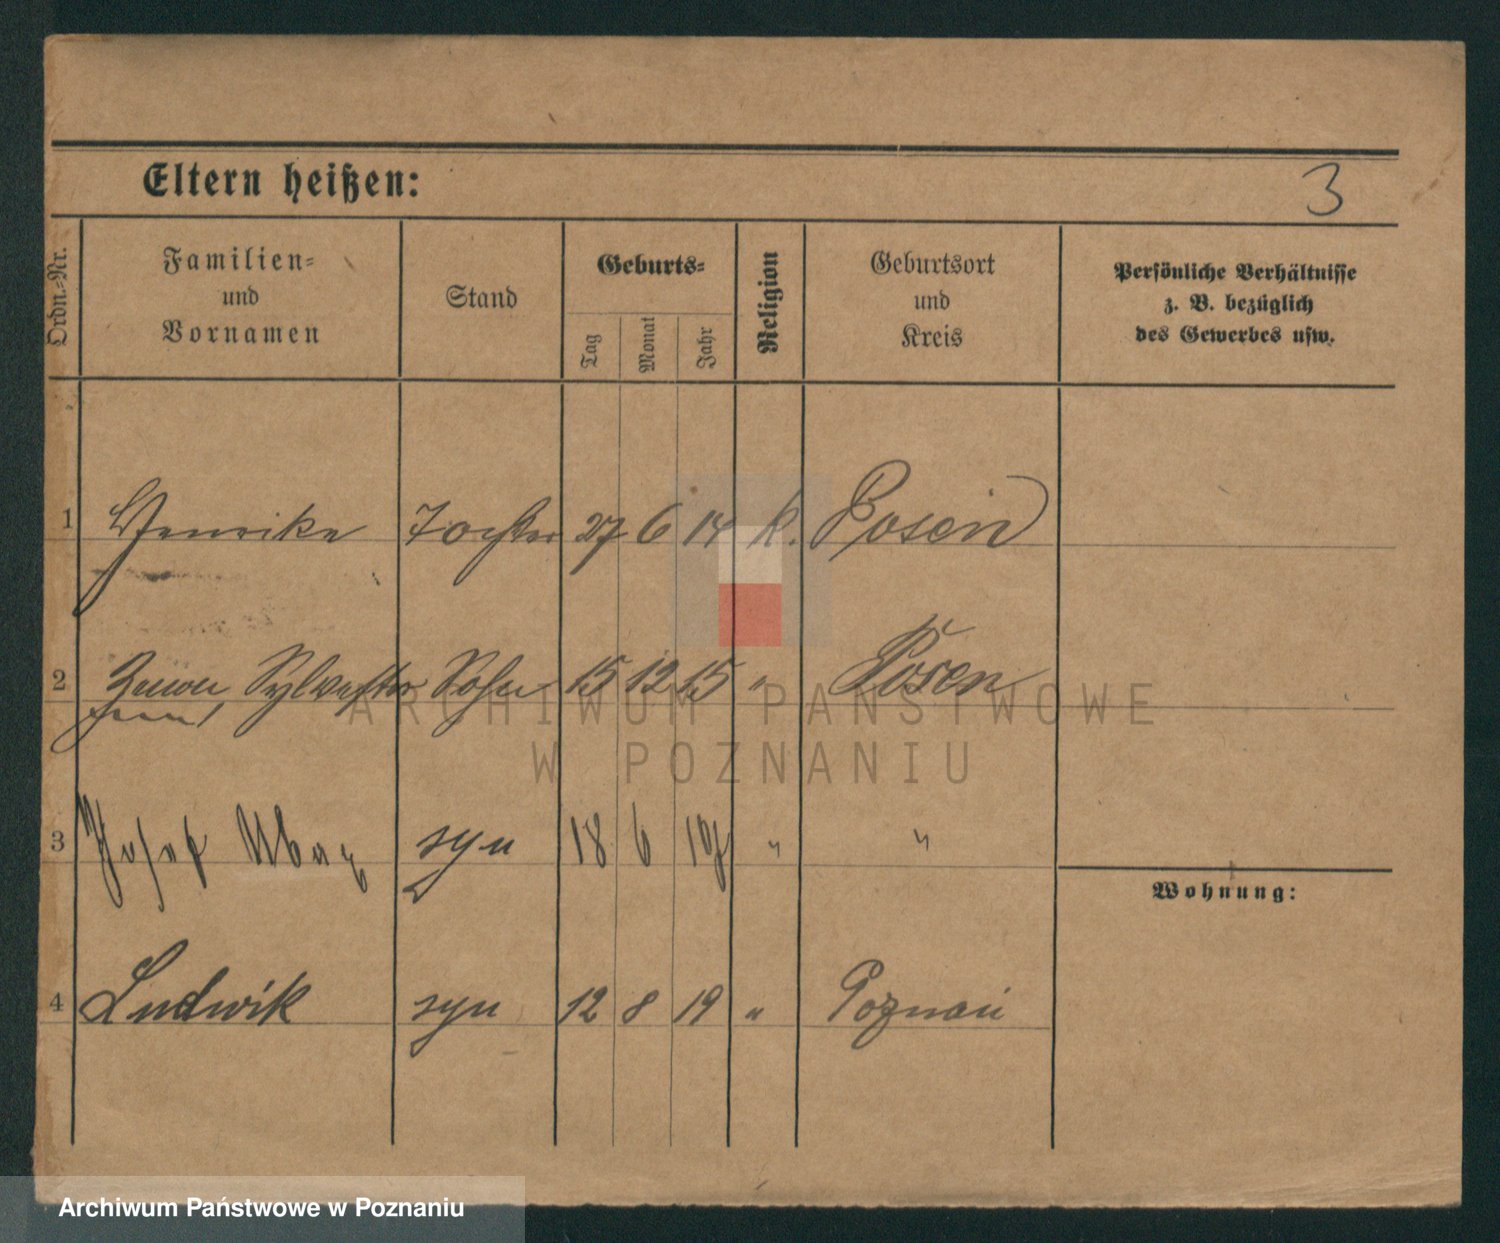 Eltern heißen:
3
Ordn.=Nr.
Familien=
und
Vornamen
Stand
Geburts=
Tag
Monat
Jahr
Religion
Geburtsort
und
Kreis
Persönliche Verhältnisse
z. B. bezüglich
des Gewerbes usw.
1 Henrike Tochter 27 6 14 k. Posen
2 Zenon Sylvester Sohn 15 12 15 " Posen
3 Josef syn 18 6 " "
Wohnung:
4 Ludwik syn 12 8 19 " Poznań
ARCHIWUM PAŃSTWOWE
W POZNANIU
Archiwum Państwowe w Poznaniu